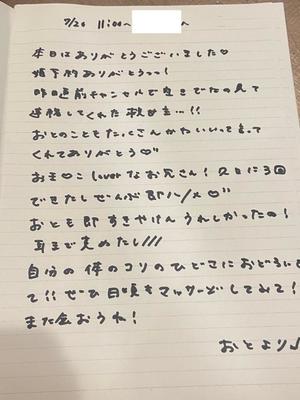 7/20 11:00〜 〜へ
本日はありがとうございました♡
ありがとうっっ!
昨日直前キャンセルで空きでたの見て
連絡してくれた
おとのこともたくさんかわいいって言って
くれてありがとう♡
loverなお兄さん! 2日に3回
できたしぜんぶ即
おとも即 うれしかったの!
耳まで責めたし///
自分の体のコリのひどさにおどろいて
て!! ぜひ日頃もマッサージしてみて!
また会おうね!
おとより♪